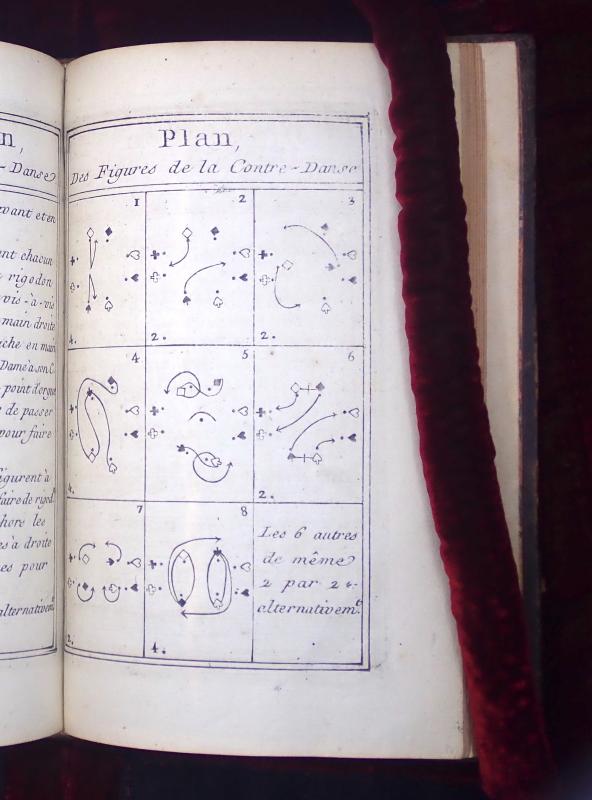 n,
- Danse
avant et en
nt chacun
rigodon
vis-à-vis
main droite
iche en main
Dame à son C.
point d'orgue
de passer
pour faire
figurent à
faire de rigod.
hors les
es à droite
es pour
alternativem.t
Plan,
Des Figures de la Contre-Danse
1
2
3
4.
2.
2.
4
5
6
4.
2.
7
8
Les 6 autres
de même
2 par 2 &.
alternativem.t
2.
4.